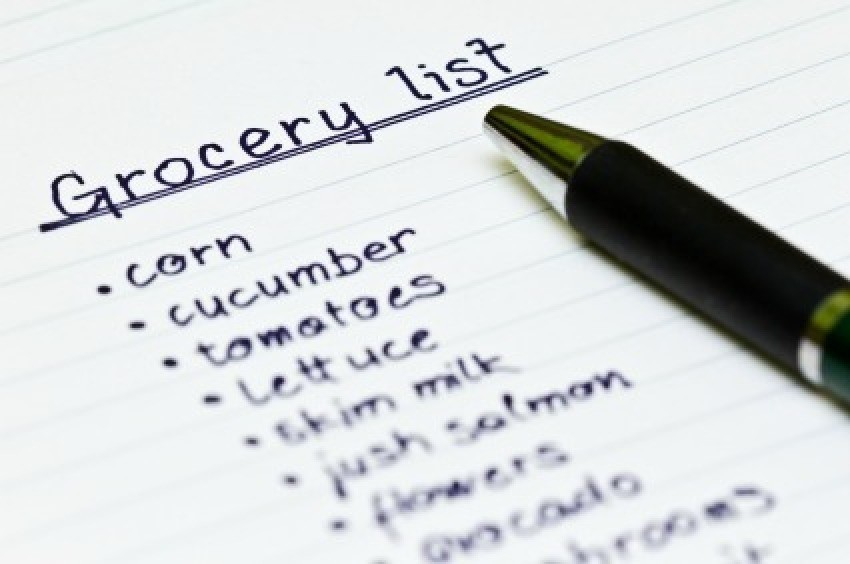 Grocery list
• corn
• cucumber
• tomatoes
• lettuce
• skim milk
• jush salmon
• flowers
avocado